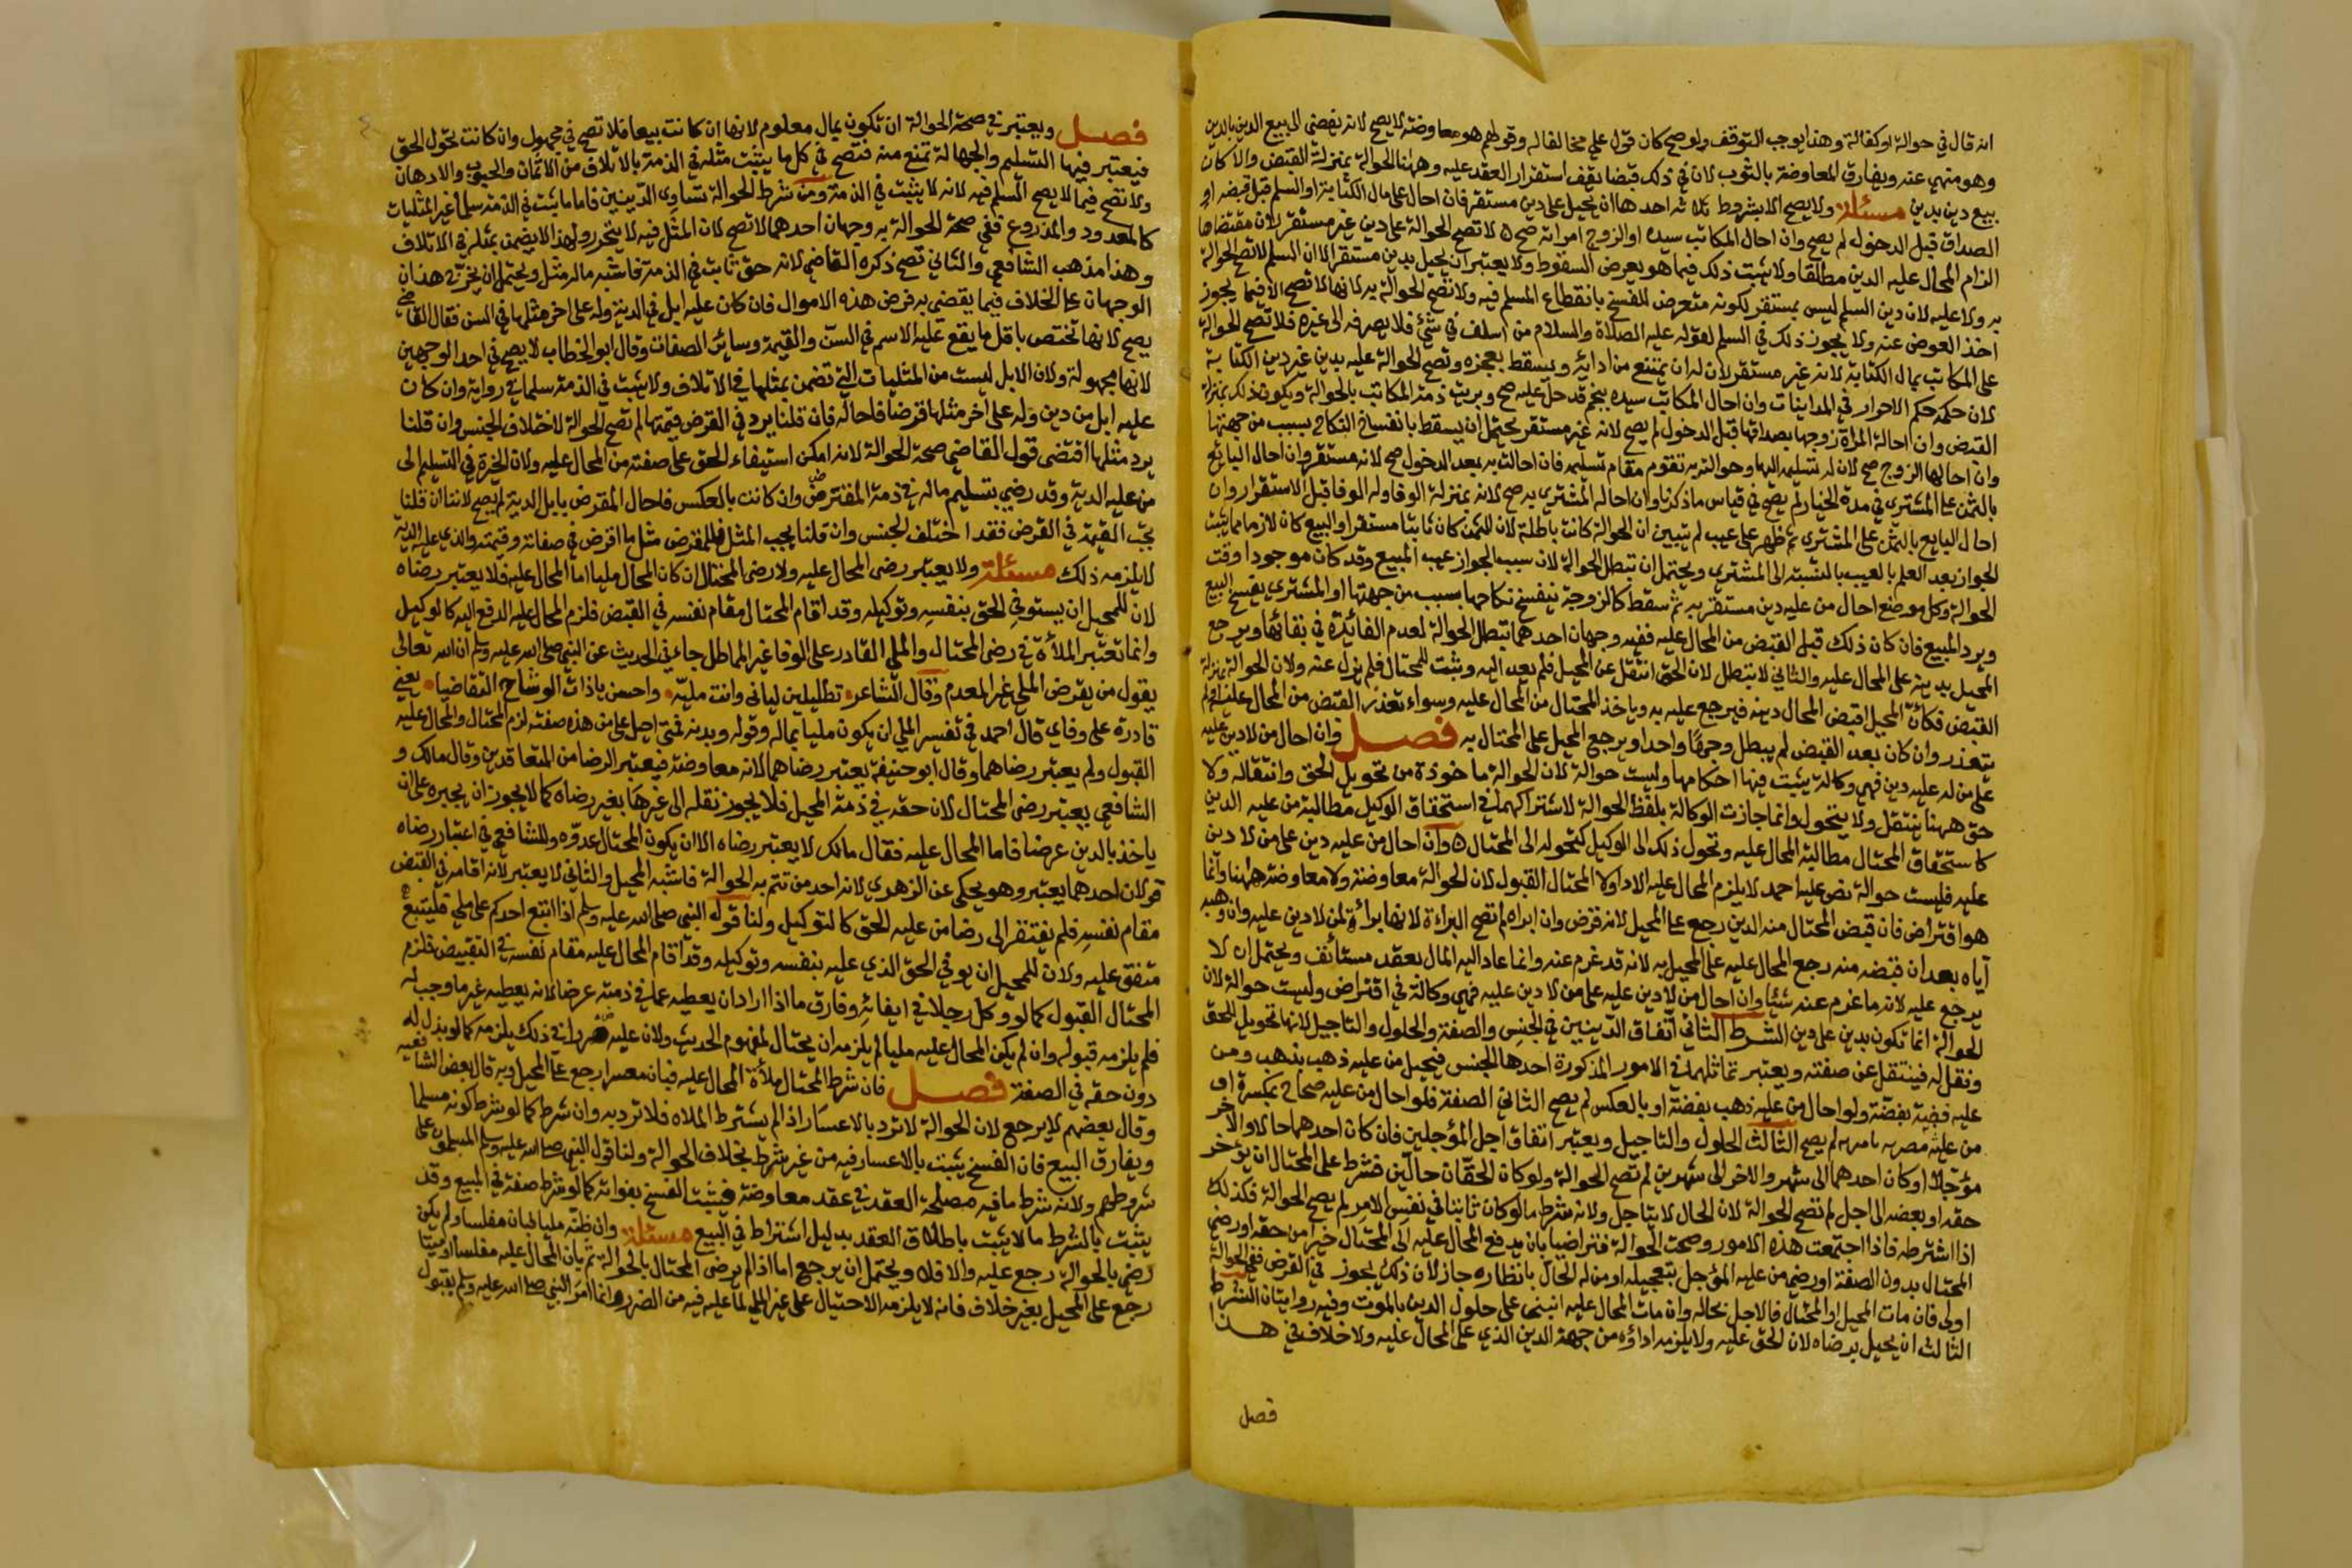 انه قال في حوالة او كفالة وهذا يوجب التوقف ولو صح كان قول علي مخالفا له وقولهم هو معاوضة لا يصح لانه يفضي الى بيع الدين بالدين
وهو منهي عنه ويفارق المعاوضة بالثوب لان في ذلك قبضا يقف استقرار العقد عليه وههنا الحوالة بمنزلة القبض والا كان
بيع دين بدين مسئلة ولا يصح الا بشروط ثلاثه احدها ان يحيل على دين مستقر فان احال على مال الكتابة او السلم قبل قبضه او
الصداق قبل الدخول لم يصح وان احال المكاتب سيده او الزوج امراته صح لا تصح الحوالة على دين غير مستقر لان مقتضاها
الزام المحال عليه الدين مطلقا ولا يثبت ذلك فيما هو بعرض السقوط ولا يعتبر ان يحيل بدين مستقر الا ان السلم لا تصح الحوالة
به ولا عليه لان دين السلم ليس بمستقر لكونه متعرض للفسخ بانقطاع المسلم فيه ولا تصح الحوالة به لانها لا تصح الا فيما يجوز
اخذ العوض عنه ولا يجوز ذلك في السلم لقوله عليه الصلاة والسلام من اسلف في شئ فلا يصرفه الى غيره فلا تصح الحوالة
على المكاتب بمال الكتابة لانه غير مستقر لان له ان يمتنع من ادائه ويسقط بعجزه وتصح الحوالة عليه بدين غير دين الكتابة
لان حكمه حكم الاحرار في المداينات وان احال المكاتب سيده بنجم قد حل عليه صح وبريت ذمة المكاتب بالحوالة ويكون ذلك بمنزلة
القبض وان احالة المراة زوجها بصداقها قبل الدخول لم يصح لانه غير مستقر يحتمل ان يسقط بانفساخ النكاح بسبب من جهتها
وان احالها الزوج صح لان له تسليمه اليها وحوالته به تقوم مقام تسليمه فان احالت به بعد الدخول صح لانه مستقر وان احال البائع
بالثمن على المشتري في مدة الخيار لم يصح في قياس ما ذكرنا وان احاله المشتري به صح لانه بمنزلة الوفا وله الوفا قبل الاستقرار وان
احال البايع بالثمن على المشتري ثم ظهر على عيب لم يتبين ان الحوالة كانت باطلة لان الثمن كان ثابتا مستقرا والبيع كان لازما وما يثبت
الجواز بعد العلم بالعيب بالنسبة الى المشتري ويحتمل ان تبطل الحوالة لان سبب الجواز عيب المبيع وقد كان موجودا وقت
الحوالة وكل موضع احال من عليه دين مستقر به ثم سقط كالزوجة ينفسخ نكاحها بسبب من جهتها او المشتري يفسخ البيع
ويرد المبيع فان كان ذلك قبل القبض من المحال عليه ففيه وجهان احدهما تبطل الحوالة لعدم الفائدة في بقائها ويرجع
المحيل بدينه على المحال عليه والثاني لا تبطل لان الحق انتقل عن المحيل فلم يعد اليه وثبت للمحتال فلم يزل عنه ولان الحوالة بمنزلة
القبض فكأن المحيل اقبض المحال دينه فيرجع عليه به وياخذ المحتال من المحال عليه وسواء تعذر القبض من المحال عليه او لم
يتعذر وان كان بعد القبض لم يبطل وجها واحدا ويرجع المحيل على المحتال به فصل وان احال من لا دين عليه
على من له عليه دين فهي وكالة يثبت فيها احكامها وليست حوالة لان الحوالة ماخوذة من تحويل الحق وانتقاله ولا
حق ههنا ينتقل ولا يتحول وانما جازت الوكالة بلفظ الحوالة لاشتراكهما في استحقاق الوكيل مطالبة من عليه الدين
كاستحقاق المحتال مطالبة المحال عليه وتحول ذلك الى الوكيل كتحوله الى المحتال وان احال من عليه دين على من لا دين
عليه فليست حوالة نص عليه احمد لا يلزم المحال عليه الادا ولا المحتال القبول لان الحوالة معاوضة ولا معاوضة ههنا وانما
هو اقتراض فان قبض المحتال منه الدين رجع على المحيل لانه قرض وان ابراه لم تصح البراءة لانها براءة لمن لا دين عليه وان وهبه
اياه بعد ان قبضه منه رجع المحال عليه على المحيل به لانه قد غرم عنه وانما عاد اليه المال بعقد مستأنف ويحتمل ان لا
يرجع عليه لانه ما غرم عنه شيئا وان احال من لا دين عليه على من لا دين عليه فهي وكالة في اقتراض وليست حوالة لان
الحوالة انما تكون بدين على دين الشرط الثاني اتفاق الدينين في الجنس والصفة والحلول والتاجيل لانها تحويل للحق
ونقل له فينتقل عن صفته ويعتبر تماثلهما في الامور المذكورة احدها الجنس فيحيل من عليه ذهب بذهب ومن
عليه فضة بفضة ولو احال من عليه ذهب بفضة او بالعكس لم يصح الثاني الصفة فلو احال من عليه صحاح بمكسرة او
من عليه مصريه باميريه لم يصح الثالث الحلول والتاجيل ويعتبر اتفاق اجل المؤجلين فان كان احدهما حالا والاخر
مؤجلا او كان احدهما الى شهر والاخر الى شهرين لم تصح الحوالة ولو كان الحقان حالين فشرط على المحتال ان يؤخر
حقه او بعضه الى اجل لم تصح الحوالة لان الحال لا يتاجل ولانه شرط ما لو كان ثابتا في نفس الامر لم يصح الحوالة فكذلك
اذا اشترطه فاذا اجتمعت هذه الامور وصحت الحوالة فتراضيا بان يدفع المحال عليه الى المحتال خيرا من حقه او رضي
المحتال بدون الصفة او رضي من عليه المؤجل بتعجيله او من له الحال بانظاره جاز لان ذلك يجوز في القرض ففي الحوالة
اولى فان مات المحيل او المحتال فالاجل بحاله وان مات المحال عليه انبنى على حلول الدين بالموت وفيه روايتان الشرط
الثالث ان يحيل برضاه لان الحق عليه ولا يلزمه اداؤه من جهة الدين الذي على المحال عليه ولا خلاف في هذا
فصل
فصل ويعتبر في صحة الحوالة ان تكون بمال معلوم لانها ان كانت بيعا فلا تصح في مجهول وان كانت تحول الحق
فيعتبر فيها التسليم والجهالة تمنع منه فتصح في كل ما يثبت مثله في الذمة بالاتلاف من الاثمان والحبوب والادهان
ولا تصح فيما لا يصح السلم فيه لانه لا يثبت في الذمة ومن شرط الحوالة تساوي الدينين فاما ما يثبت في الذمة سلما غير المثليات
كالمعدود والمذروع ففي صحة الحوالة به وجهان احدهما لا تصح لان المثل فيه لا يتحرر ولهذا لا يضمن بمثله في الاتلاف
وهذا مذهب الشافعي والثاني تصح ذكره القاضي لانه حق ثابت في الذمة فاشبه ماله مثل ويحتمل ان يخرج هذان
الوجهان على الخلاف فيما يقضي به قرض هذه الاموال فان كان عليه ابل في الدية وله على اخر مثلها في السن فقال القاضي
يصح لانها تختص باقل ما يقع عليه الاسم في السن والقيمة وسائر الصفات وقال ابو الخطاب لا يصح في احد الوجهين
لانها مجهولة ولان الابل ليست من المثليات التي تضمن بمثلها في الاتلاف ولا يثبت في الذمة سلما في رواية وان كان
عليه ابل من دين وله على اخر مثلها قرضا فاحاله فان قلنا يرد في القرض قيمتها لم تصح الحوالة لاختلاف الجنس وان قلنا
يرد مثلها اقتضى قول القاضي صحة الحوالة لانه امكن استيفاء الحق على صفته من المحال عليه ولان الخيرة في التسليم الى
من عليه الدية وقد رضي بتسليم ماله في ذمة المقترض وان كانت بالعكس فاحال المقرض بابل الدية لم يصح لاننا ان قلنا
تجب القيمة في القرض فقد اختلف الجنس وان قلنا يجب المثل فللمقرض مثل ما اقرض في صفاته وقيمته والذي عليه الدية
لا يلزمه ذلك مسئلة ولا يعتبر رضى المحال عليه ولا رضى المحتال ان كان المحال مليا اما المحال عليه فلا يعتبر رضاه
لان للمحيل ان يستوفي الحق بنفسه وتوكيله وقد اقام المحتال مقام نفسه في القبض فلزم المحال عليه الدفع اليه كالوكيل
وانما تعتبر الملأة في رضى المحتال والملي القادر على الوفا غير المماطل جاء في الحديث عن النبي صلى الله عليه وسلم ان الله تعالى
يقول من يقرض الملي غير المعدم وقال الشاعر تطيلين لياني وانت ملية واحسن ياذات الوشاح التقاضيا يعني
قادرة على وفاي قال احمد في تفسير الملي ان يكون مليا بماله وقوله وبدنه فمتى احيل على من هذه صفته لزم المحتال والمحال عليه
القبول ولم يعتبر رضاهما وقال ابو حنيفة يعتبر رضاهما لانه معاوضة فيعتبر الرضا من المتعاقدين وقال مالك و
الشافعي يعتبر رضى المحتال لان حقه في ذمة المحيل فلا يجوز نقله الى غيرها بغير رضاه كما لا يجوز ان يجبره على ان
ياخذ بالدين عرضا فاما المحال عليه فقال مالك لا يعتبر رضاه الا ان يكون المحتال عدوه وللشافعي في اعتبار رضاه
قولان احدهما يعتبر وهو يحكى عن الزهري لانه احد من تتم به الحوالة فاشبه المحيل والثاني لا يعتبر لانه اقامه في القبض
مقام نفسه فلم يفتقر الى رضا من عليه الحق كالتوكيل ولنا قوله النبي صلى الله عليه وسلم اذا اتبع احدكم على ملي فليتبع
متفق عليه ولان للمحيل ان يوفي الحق الذي عليه بنفسه وتوكيله وقد اقام المحال عليه مقام نفسه في التقبيض فلزم
المحتال القبول كما لو وكل رجلا في ايفائه وفارق ما اذا اراد ان يعطيه عما في ذمته عرضا لانه يعطيه غير ما وجب له
فلم يلزمه قبوله وان لم يكن المحال عليه مليا لم يلزمه ان يحتال لمفهوم الحديث ولان عليه ضررا في ذلك يلزمه كما لو بذل له
دون حقه في الصفة فصل فان شرط المحتال ملأة المحال عليه فبان معسرا رجع على المحيل وبه قال بعض الشافعية
وقال بعضهم لا يرجع لان الحوالة لا ترد بالاعسار اذا لم يشترط الملاه فلا ترد به وان شرط كما لو شرط كونه مسلما
ويفارق البيع فان الفسخ يثبت بالاعسار فيه من غير شرط بخلاف الحوالة ولنا قول النبي صلى الله عليه وسلم المسلمون على
شروطهم ولانه شرط ما فيه مصلحة العقد في عقد معاوضة فيثبت الفسخ بفواته كما لو شرط صفة في المبيع وقد
يثبت بالشرط ما لا يثبت باطلاق العقد بدليل اشتراط في البيع مسئلة وان ظنه مليا فبان مفلسا ولم يكن
رضي بالحوالة رجع عليه والا فلا ويحتمل ان يرجع اما اذا لم يرضى المحتال بالحوالة ثم بان المحال عليه مفلسا او ميتا
رجع على المحيل بغير خلاف فانه لا يلزمه الاحتيال على غير الملي لما عليه فيه من الضرر وانما امر النبي صلى الله عليه وسلم بقبول